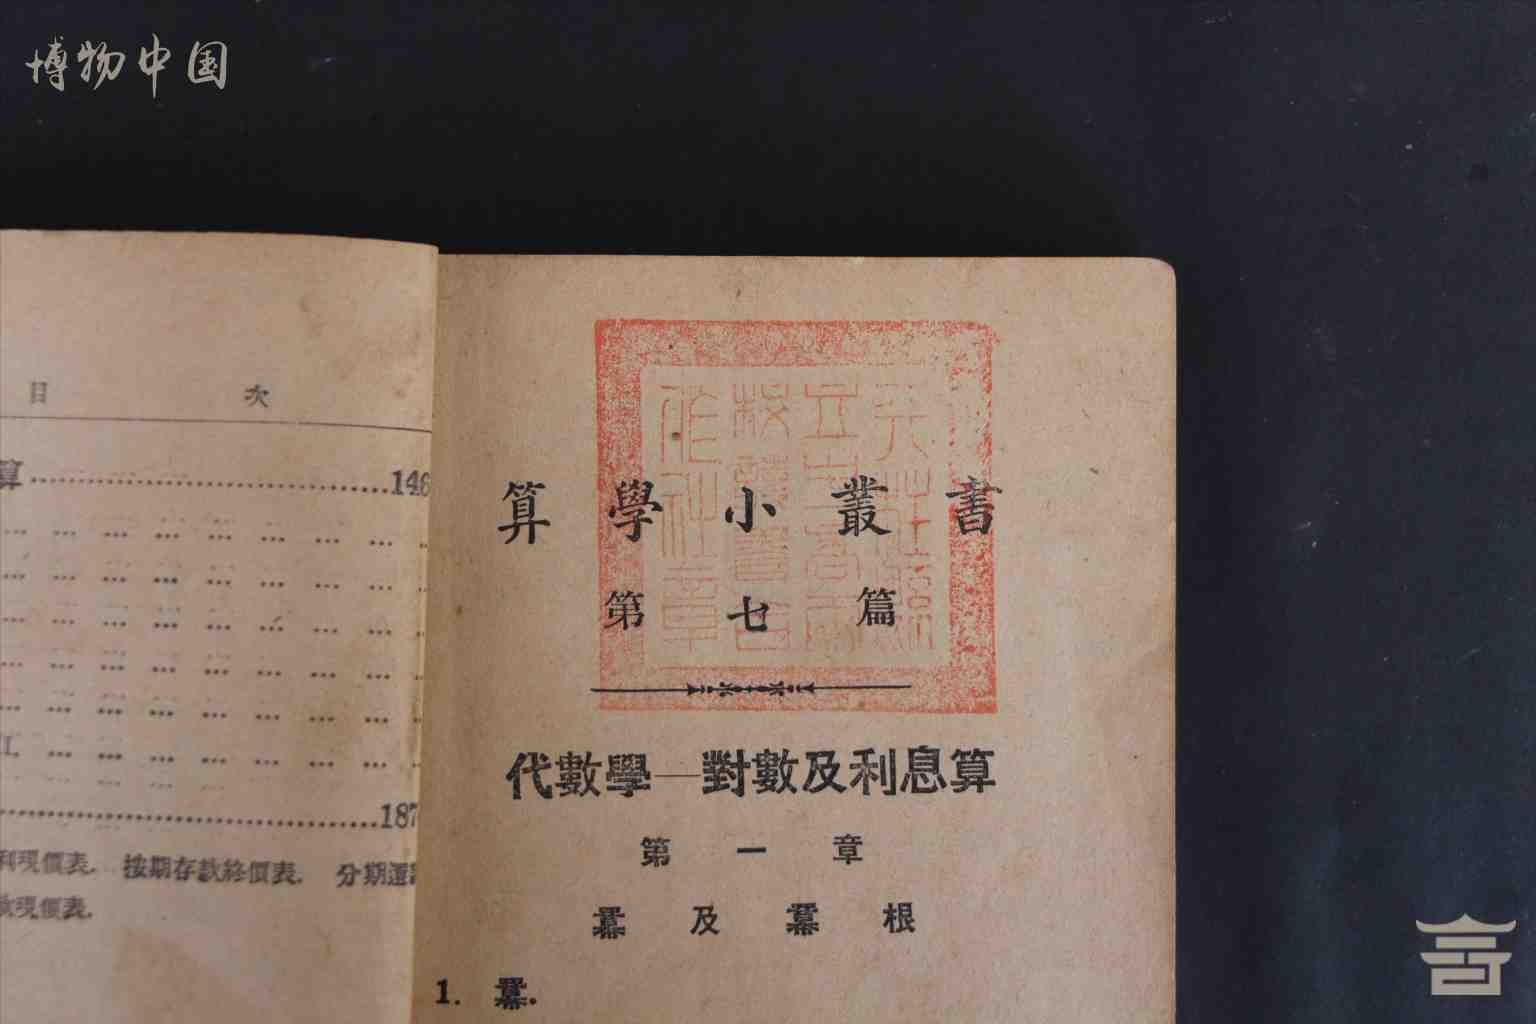 博物中国
目 次
算 146
187
利現價表. 按期存款終價表. 分期還
款現價表.
算學小叢書
第七篇
代數學—對數及利息算
第一章
羃及羃根
1. 羃.